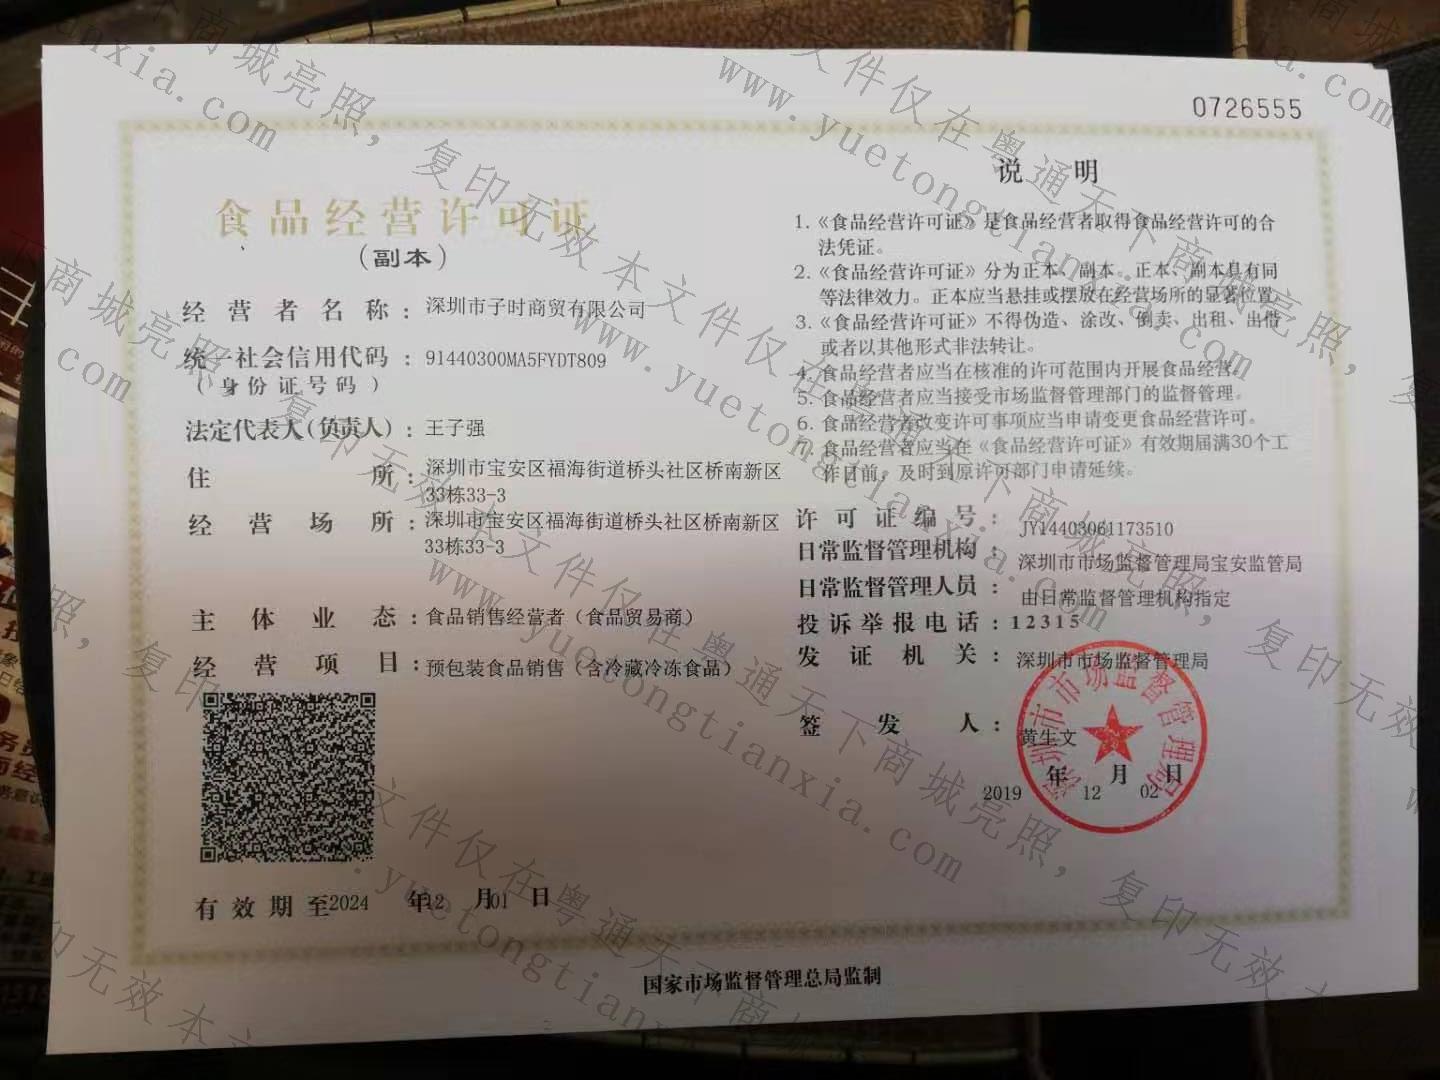 0726555
食品经营许可证
（副本）
经营者名称：深圳市子时商贸有限公司
统一社会信用代码：91440300MA5FYDT809
（身份证号码）
法定代表人（负责人）：王子强
住所：深圳市宝安区福海街道桥头社区桥南新区
33栋33-3
经营场所：深圳市宝安区福海街道桥头社区桥南新区
33栋33-3
主体业态：食品销售经营者（食品贸易商）
经营项目：预包装食品销售（含冷藏冷冻食品）
有效期至2024年12月01日
说明
1.《食品经营许可证》是食品经营者取得食品经营许可的合
法凭证。
2.《食品经营许可证》分为正本、副本。正本、副本具有同
等法律效力。正本应当悬挂或摆放在经营场所的显著位置。
3.《食品经营许可证》不得伪造、涂改、倒卖、出租、出借
或者以其他形式非法转让。
4.食品经营者应当在核准的许可范围内开展食品经营。
5.食品经营者应当接受市场监督管理部门的监督管理。
6.食品经营者改变许可事项应当申请变更食品经营许可。
7.食品经营者应当在《食品经营许可证》有效期届满30个工
作日前，及时到原许可部门申请延续。
许可证编号：JY14403061173510
日常监督管理机构：深圳市市场监督管理局宝安监管局
日常监督管理人员：由日常监督管理机构指定
投诉举报电话：12315
发证机关：深圳市市场监督管理局
签发人：黄生文
2019年12月02日
深圳市市场监督管理局
国家市场监督管理总局监制
本文件仅在粤通天下商城亮照，复印无效
www.yuetongtianxia.com